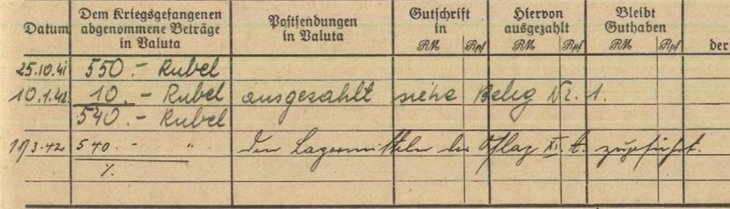 Datum Dem Kriegsgefangenen abgenommene Beträge in Valuta Postsendungen in Valuta Gutschrift in RM Rpf Hiervon ausgezahlt RM Rpf Bleibt Guthaben RM Rpf der
25.10.41 550.- Rubel
10.1.42 10.- Rubel ausgezahlt siehe Beleg Nr. 1.
540.- Rubel
3.42 540.- " den Lagermitteln des Oflag XI. A. zugeführt.